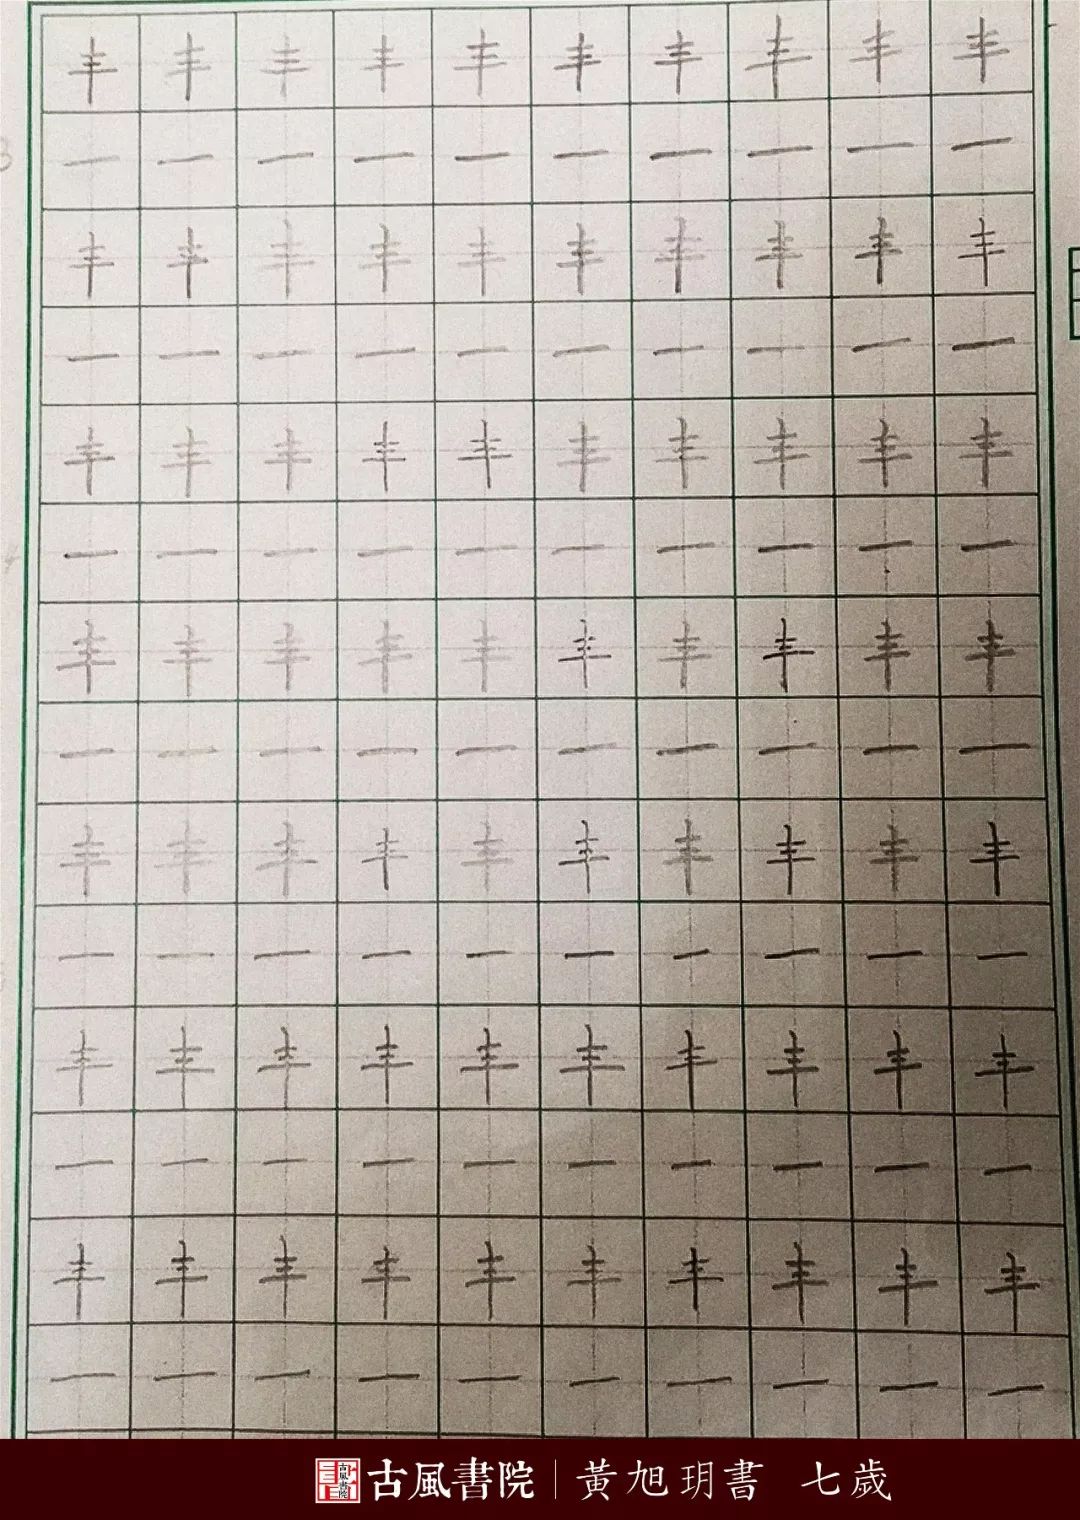 丰丰丰丰丰丰丰丰丰丰
一一一一一一一一一一
丰丰丰丰丰丰丰丰丰丰
一一一一一一一一一一
丰丰丰丰丰丰丰丰丰丰
一一一一一一一一一一
丰丰丰丰丰丰丰丰丰丰
一一一一一一一一一一
丰丰丰丰丰丰丰丰丰丰
一一一一一一一一一一
丰丰丰丰丰丰丰丰丰丰
一一一一一一一一一一
丰丰丰丰丰丰丰丰丰丰
一一一一一一一一一一
古風書院 古風書院 | 黃旭玥書 七歲